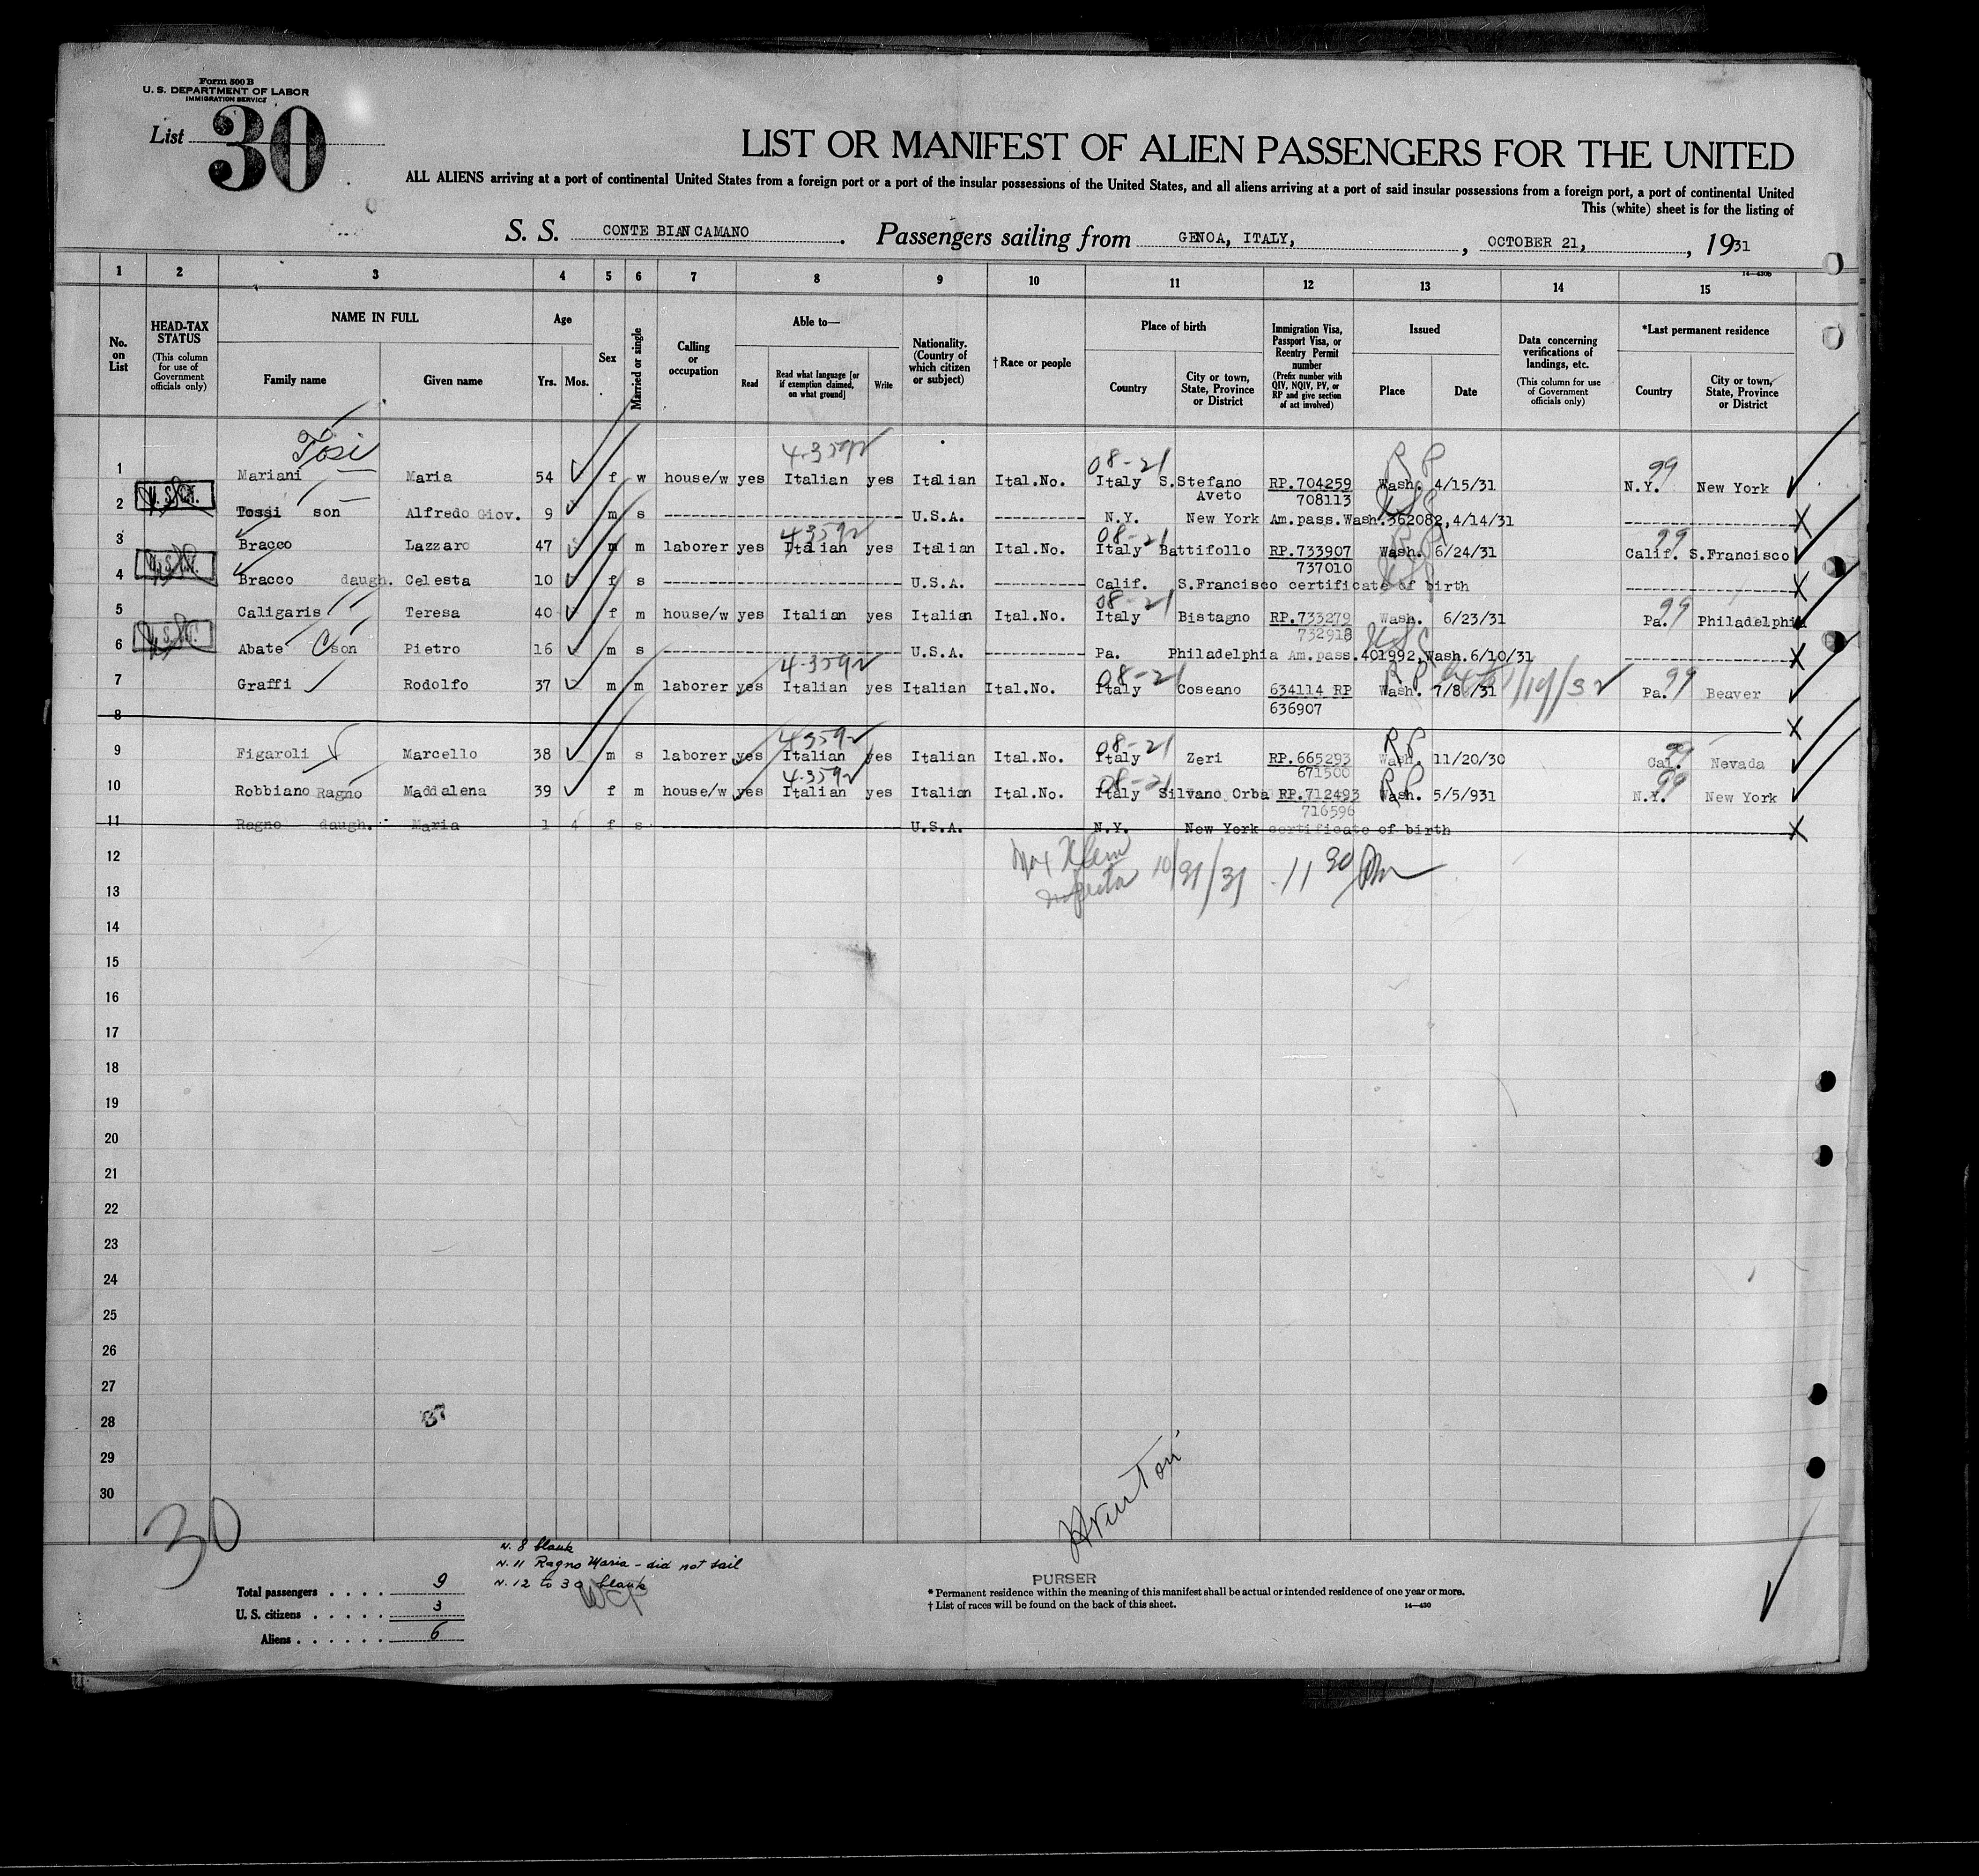 Form 500 B
U. S. DEPARTMENT OF LABOR
IMMIGRATION SERVICE
List 30
LIST OR MANIFEST OF ALIEN PASSENGERS FOR THE UNITED
ALL ALIENS arriving at a port of continental United States from a foreign port or a port of the insular possessions of the United States, and all aliens arriving at a port of said insular possessions from a foreign port, a port of continental United
This (white) sheet is for the listing of
S. S. CONTE BIANCAMANO. Passengers sailing from GENOA, ITALY, , OCTOBER 21, , 1931
14—430B
1 2 3 4 5 6 7 8 9 10 11 12 13 14 15
No. on List
HEAD-TAX STATUS (This column for use of Government officials only)
NAME IN FULL
Family name Given name
Age
Yrs. Mos.
Sex
Married or single
Calling or occupation
Able to—
Read Read what language [or if exemption claimed, on what ground] Write
Nationality. (Country of which citizen or subject)
†Race or people
Place of birth
Country City or town, State, Province or District
Immigration Visa, Passport Visa, or Reentry Permit number (Prefix number with QIV, NQIV, PV, or RP and give section of act involved)
Issued
Place Date
Data concerning verifications of landings, etc. (This column for use of Government officials only)
*Last permanent residence
Country City or town, State, Province or District
Tosi 4-3592 08-21 RP 99
1 Mariani Maria 54 f w house/w yes Italian yes Italian Ital.No. Italy S.Stefano Aveto RP.704259 708113 Wash. 4/15/31 N.Y. New York
2 Tossi son Alfredo Giov. 9 m s U.S.A. N.Y. New York Am.pass.Wash.362082,4/14/31 X
4-3592 08-21 RP 99
3 Bracco Lazzaro 47 m m laborer yes Italian yes Italian Ital.No. Italy Battifollo RP.733907 737010 Wash. 6/24/31 Calif. S.Francisco
4 Bracco daugh. Celesta 10 f s U.S.A. Calif. S.Francisco certificate of birth X
08-21 99
5 Caligaris Teresa 40 f m house/w yes Italian yes Italian Ital.No. Italy Bistagno RP.733279 732918 Wash. 6/23/31 Pa. Philadelphia
USC
6 Abate C son Pietro 16 m s U.S.A. Pa. Philadelphia Am.pass.401992,Wash.6/10/31 X
4-3592 08-21 RP 99
7 Graffi Rodolfo 37 m m laborer yes Italian yes Italian Ital.No. Italy Coseano 634114 RP 636907 Wash. 7/8/31 Pa. Beaver
8 X
4-3592 08-21 RP 99
9 Figaroli Marcello 38 m s laborer yes Italian yes Italian Ital.No. Italy Zeri RP.665293 671500 Wash. 11/20/30 Cal. Nevada
4-3592 08-21 RP 99
10 Robbiano Ragno Maddalena 39 f m house/w yes Italian yes Italian Ital.No. Italy Silvano Orba RP.712493 716596 Wash. 5/5/931 N.Y. New York
11 Ragno daugh. Maria 1 4 f s U.S.A. N.Y. New York certificate of birth X
12
Inspector 10/31/31 11 30 Pm
13
14
15
16
17
18
19
20
21
22
23
24
25
26
27
28
29
30
37
30
N. 8 blank
N. 11 Ragno Maria - did not sail
N. 12 to 30 blank
Total passengers . . . . 9
U. S. citizens . . . . . 3
Aliens . . . . . . 6
PURSER
* Permanent residence within the meaning of this manifest shall be actual or intended residence of one year or more.
† List of races will be found on the back of this sheet.
14—430